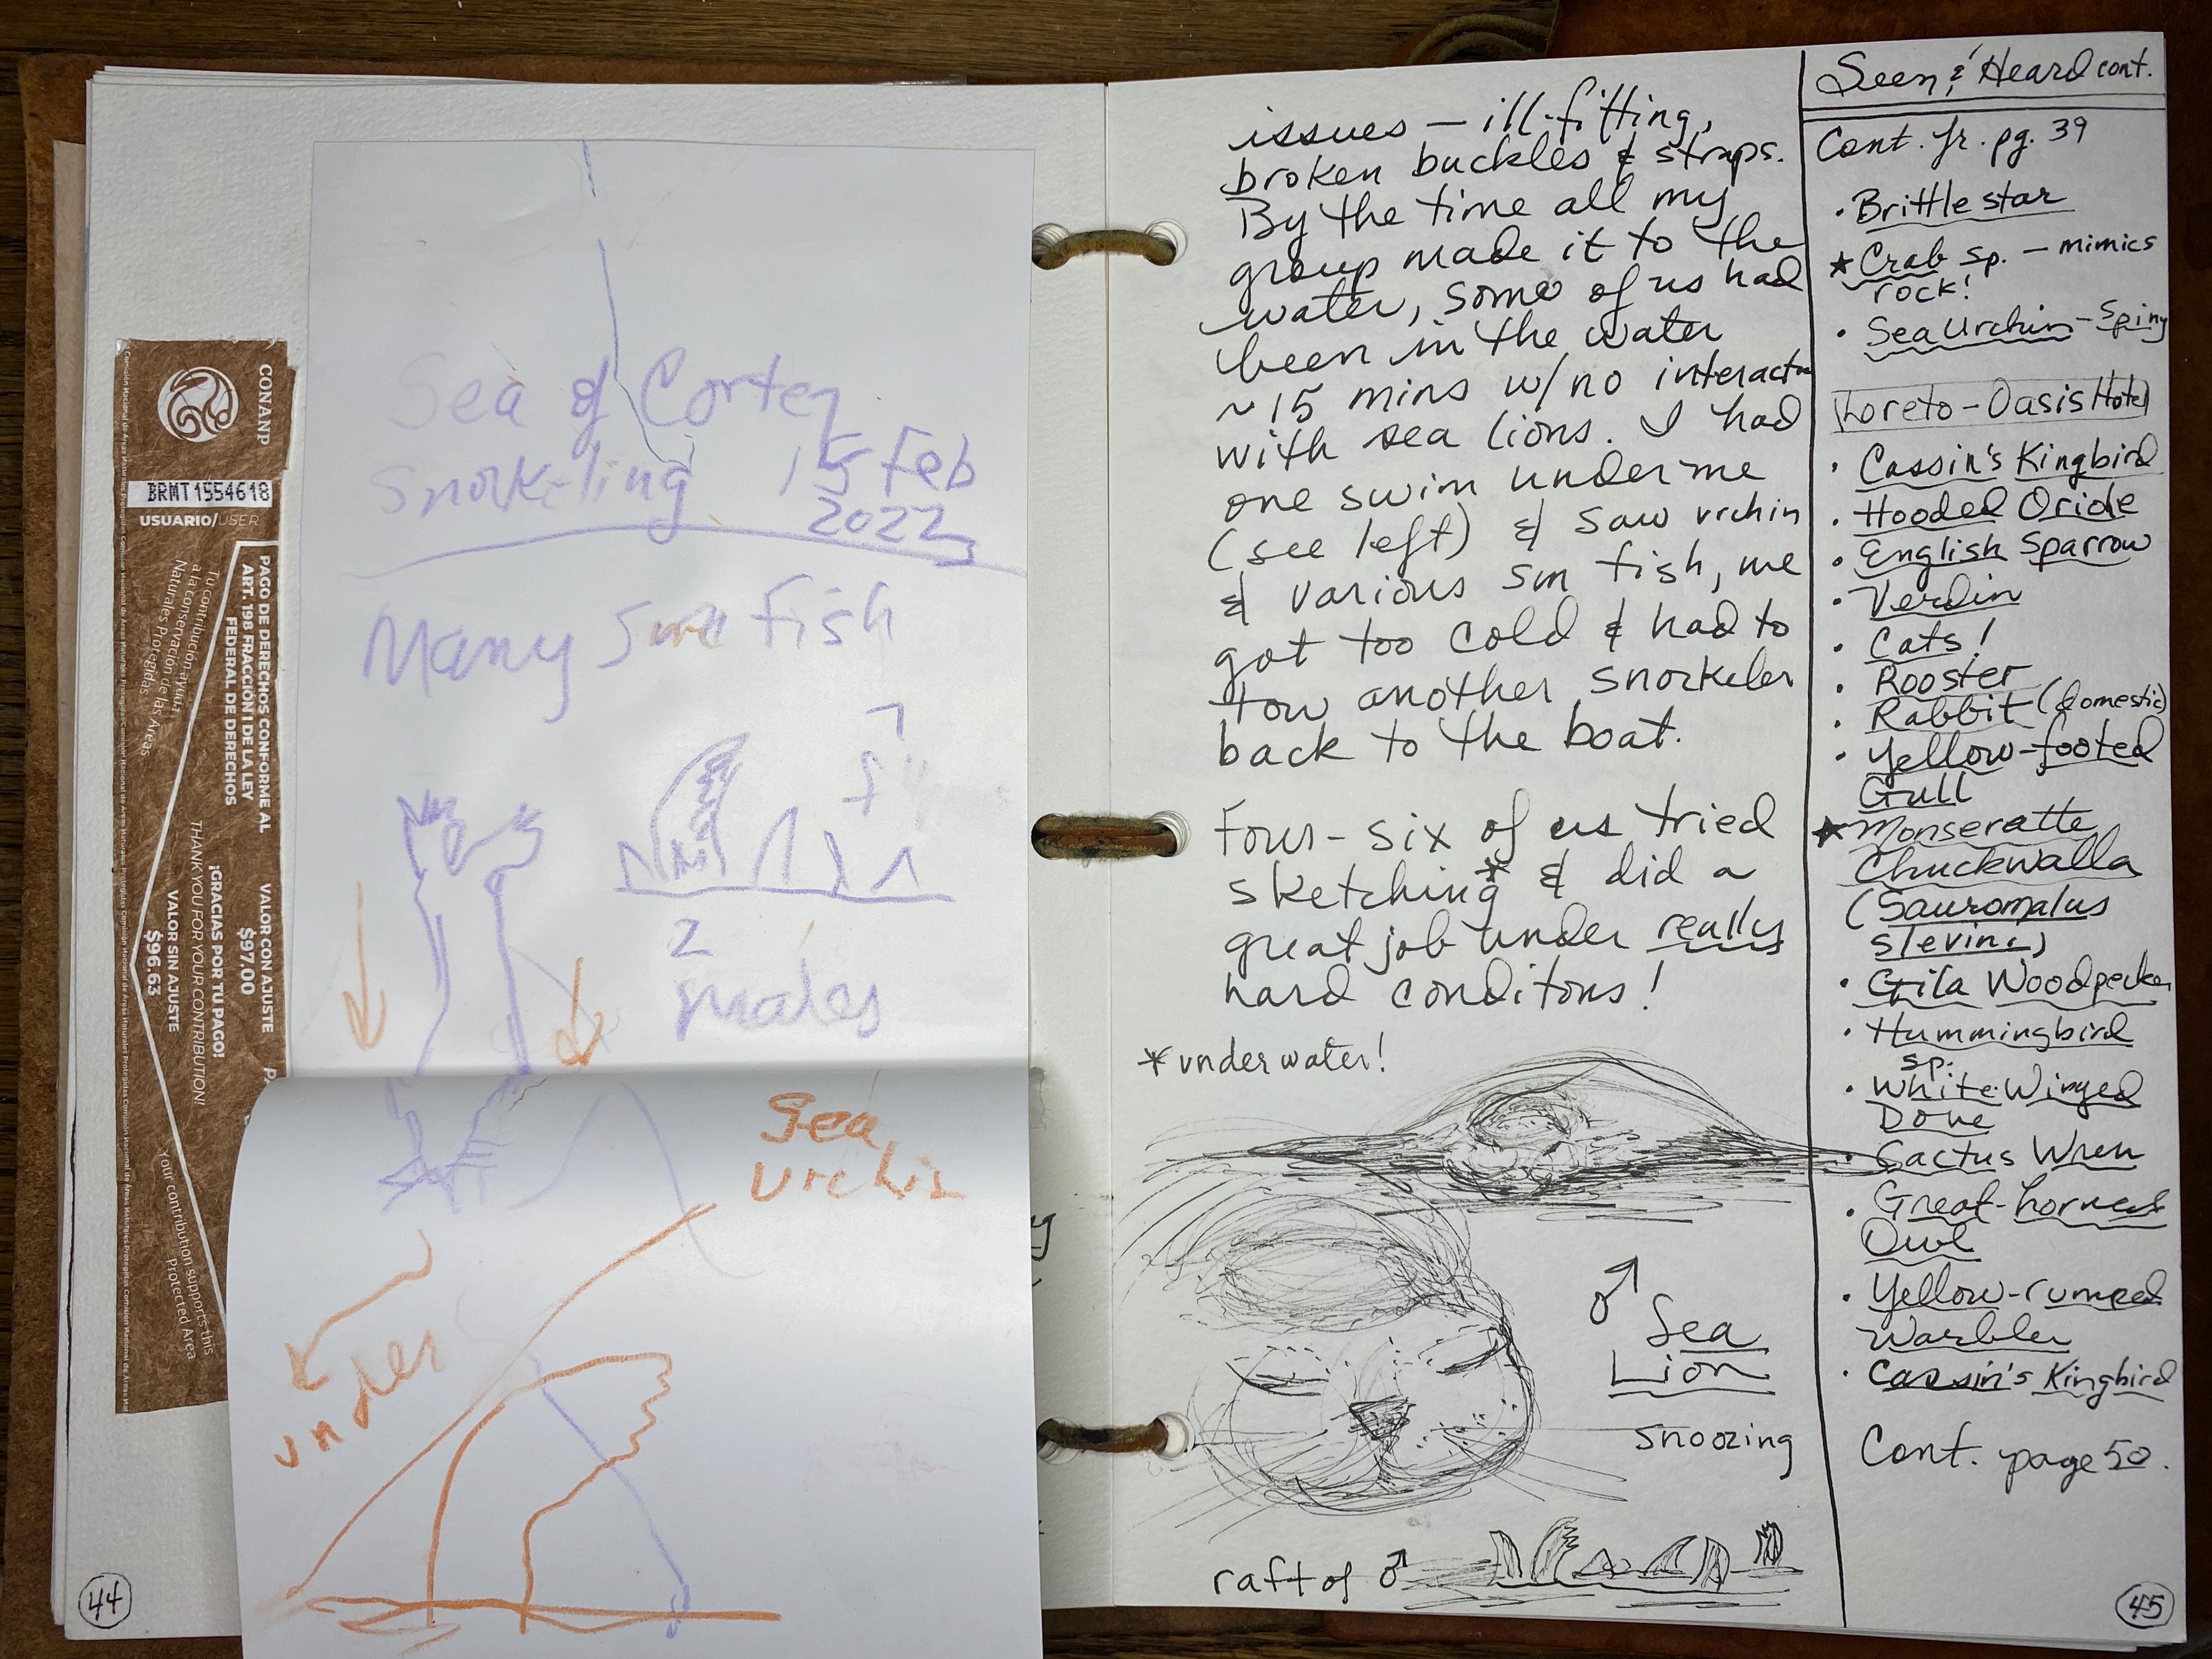 CONANP
BRMT 1554618
USUARIO/USER
PAGO DE DERECHOS CONFORME AL
ART. 198 FRACCIÓN I DE LA LEY
FEDERAL DE DERECHOS
Tu contribución ayuda
a la conservación de las Áreas
Naturales Protegidas
VALOR CON AJUSTE
$97.00
¡GRACIAS POR TU PAGO!
THANK YOU FOR YOUR CONTRIBUTION!
VALOR SIN AJUSTE
$96.63
Your contribution supports this
Protected Area
Comisión Nacional de Áreas Naturales Protegidas
Sea of Cortez
Snorkeling 15 Feb
2022
Many Sm Fish
7
2
males
Sea
Urchin
under
44
issues – ill-fitting,
broken buckles & straps.
By the time all my
group made it to the
water, some of us had
been in the water
~15 mins w/no interactn
with sea lions. I had
one swim under me
(see left) & saw urchin
& various sm fish, we
got too cold & had to
tow another snorkeler
back to the boat.
Four-six of us tried
sketching* & did a
great job under really
hard conditons!
*underwater!
♂ Sea
Lion
snoozing
raft of ♂
Seen & Heard cont.
Cont. fr. pg. 39
• Brittle star
★ Crab sp. – mimics
rock!
• Sea Urchin – Spiny
Loreto – Oasis Hotel
• Cassin's Kingbird
• Hooded Oriole
• English Sparrow
• Verdin
• Cats!
• Rooster
• Rabbit (domestic)
• Yellow-footed
Gull
★ Monseratte
Chuckwalla
(Sauromalus
slevini)
• Gila Woodpecker
• Hummingbird
sp.
• White-Winged
Dove
• Cactus Wren
• Great-horned
Owl
• Yellow-rumped
Warbler
• Cassin's Kingbird
Cont. page 50.
45